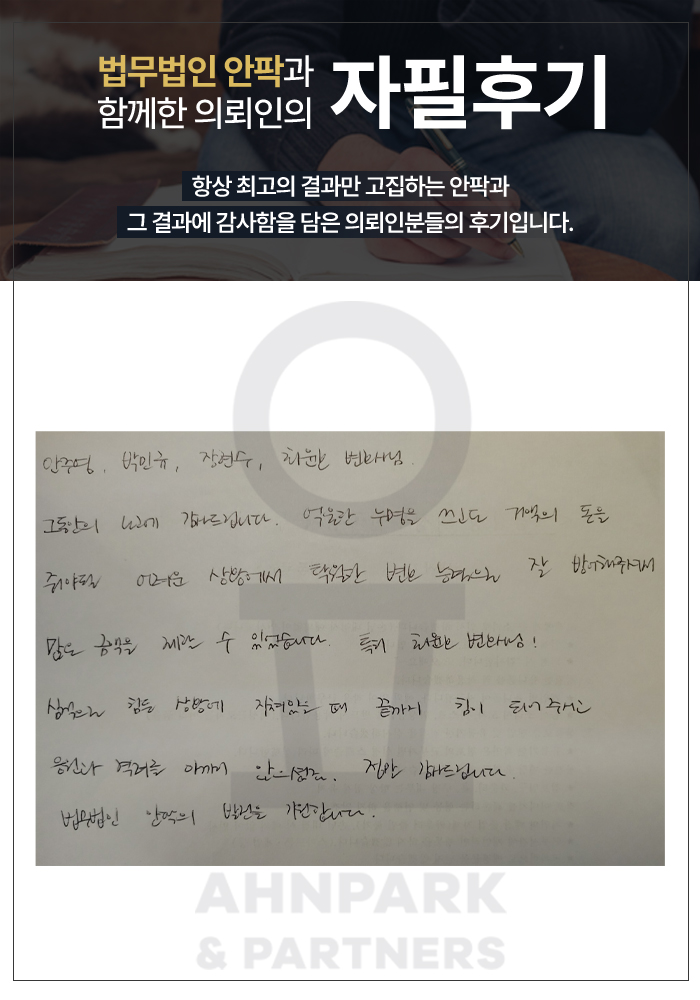 법무법인 안팍과
함께한 의뢰인의
자필후기
항상 최고의 결과만 고집하는 안팍과
그 결과에 감사함을 담은 의뢰인분들의 후기입니다.
안주영, 박민규, 장현수, 변호사님.
그동안의 노고에 감사드립니다. 억울한 누명을 쓰고도 거액의 돈을
줘야될 어려운 상황에서 탁월한 변호 능력으로 잘 방어해주셔서
많은 금액을 제할 수 있었습니다. 특히 변호사님!
심적으로 힘든 상황에 지쳐있을 때 끝까지 힘이 되어주시고
응원과 격려를 아끼지 않으셨죠. 정말 감사드립니다.
법무법인 안팍의 발전을 기원합니다.
AHNPARK
& PARTNERS